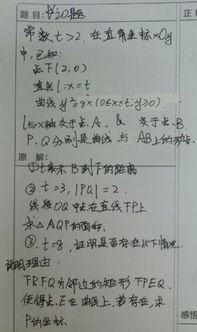 题目:书20题
常数t>2. 在直角坐标xOy
中,已知:
点F(2,0)
直线l:x=t
曲线 y²=8x(0≤x≤t,y≥0).
l与x轴交于点A、& 交于点B.
P、Q分别是曲线与AB上的动点.
原解:
①t表示B到F的距离
②t=3,|PQ|=2.
线段OQ中点在直线FP上
求△AQP的面积.
③.t=8,证明是否存在以下情况.
说明理由
FP.FQ为邻边的矩形FPEQ.
使得点E在曲线上,若存在,求
P的坐标.
正
感悟